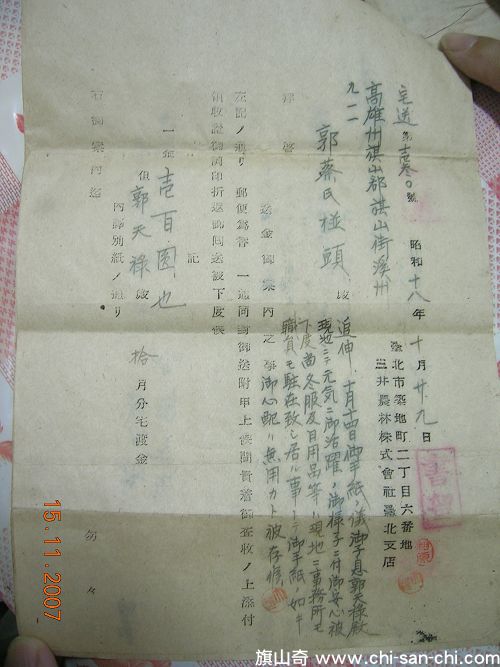 宅送第壱参〇號
昭和十八年十月廿九日
臺北市築地町二丁目六番地
三井農林株式會社臺北支店
高雄州旗山郡旗山街溪州
九一一
郭蔡氏椪頭殿
追伸 十月十四日御手紙ノ儀御子息郭天祿殿
現地ニテ元気ニ御活躍ノ御様子ニ付御安心被
下度尚冬服及日用品等ハ現地ニ事務所モ
職員モ駐在致シ居ル事トテ御手紙ノ如キ
御心配ハ無用カト被存候
拝啓
送金御案内之事
左記ノ通リ郵便為替一通同封御送附申上候間貴着御査收ノ上添付
領收證御調印折返御回送被下度候
記
一金壱百圓也
但郭天祿殿拾月分宅渡金
內譯別紙ノ通リ
右御案內迄
匆々
15.11.2007
旗山奇 www.chi-san-chi.com